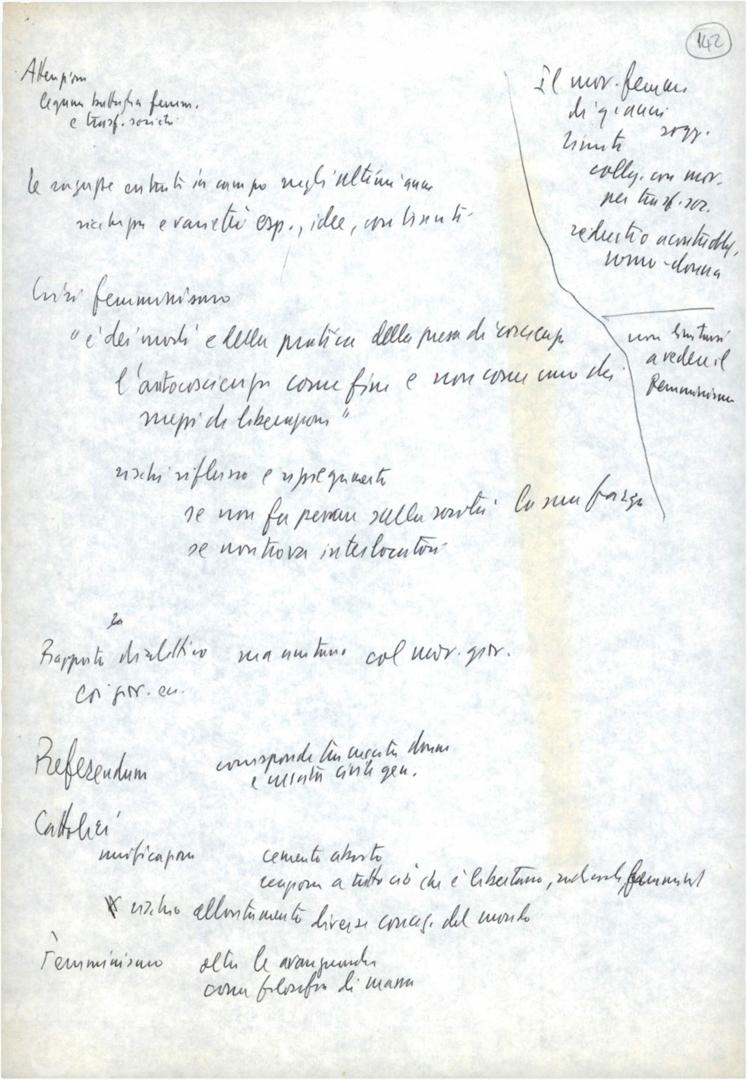 142
Attenzione
legame battaglia femm.
e trasf. società
Le ragazze entrate in campo negli ultimi anni
ricchezza e varietà esp., idee, contenuti
Crisi femminismo
"è dei modi e della pratica della presa di coscienza
l'autocoscienza come fine e non come uno dei
mezzi di liberazione"
rischi riflusso e ripiegamento
se non fa pesare sulla società la sua forza
se non trova interlocutori
Rapporto dialettico ma unitario col mov. giov.
coi giov. com.
Referendum corrisponde tra crescita donne
e crescita civile gen.
Cattolici
unificazione cemento aborto
reazione a tutto ciò che è libertario, radicale, femminist
rischio allontamento diverse concez. del mondo
Femminismo oltre le avanguardie
come filosofia di massa
Il mov. femm.
di giovani
sogg.
limite
colleg. con mov.
per trasf. soc.
uomo-donna
non limitarsi
a vedere il
femminismo